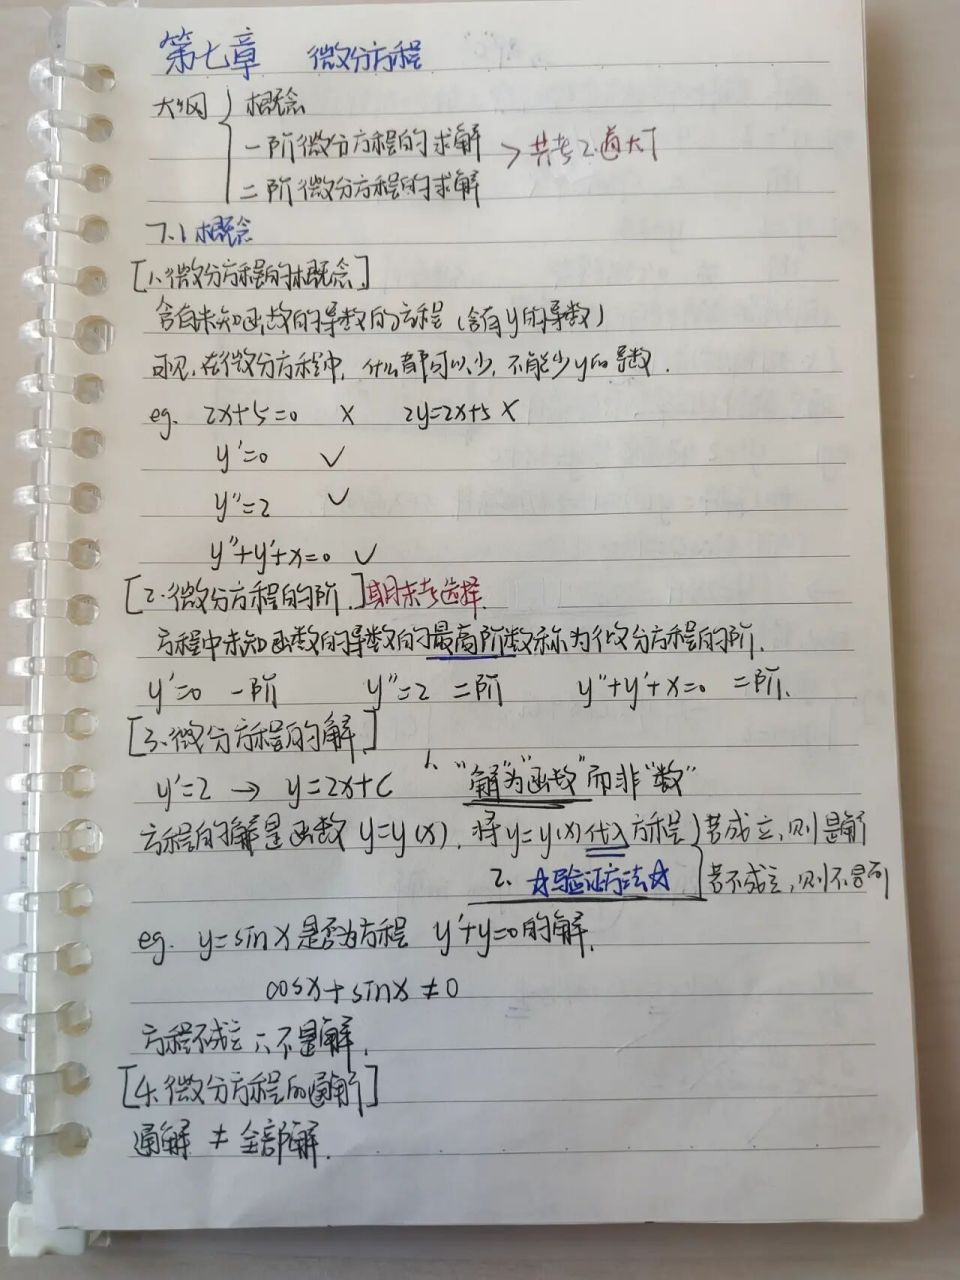 第七章 微分方程
大纲 { 概念
一阶微分方程的求解 > 共考2道大T
二阶微分方程的求解
7.1 概念
[1.微分方程的概念]
含有未知函数的导数的方程(含有y的导数)
可见,在微分方程中,什么都可以少,不能少y的导数.
eg. 2x+5=0 × 2y=2x+5 ×
y'=0 ✓
y''=2 ✓
y''+y'+x=0 ✓
[2.微分方程的阶.]期末考选择.
方程中未知函数的导数的最高阶数称为微分方程的阶.
y'=0 一阶 y''=2 二阶 y''+y'+x=0 二阶.
[3.微分方程的解.]
y'=2 → y=2x+C 1、"解"为"函数"而非"数"
方程的解是函数y=y(x),将y=y(x)代入方程 } 若成立,则是解
2、☆验证方法☆ 若不成立,则不是
eg. y=sinx是否为方程 y'+y=0的解.
cosx+sinx≠0
方程不成立∴不是解.
[4.微分方程的通解]
通解 ≠ 全部解.